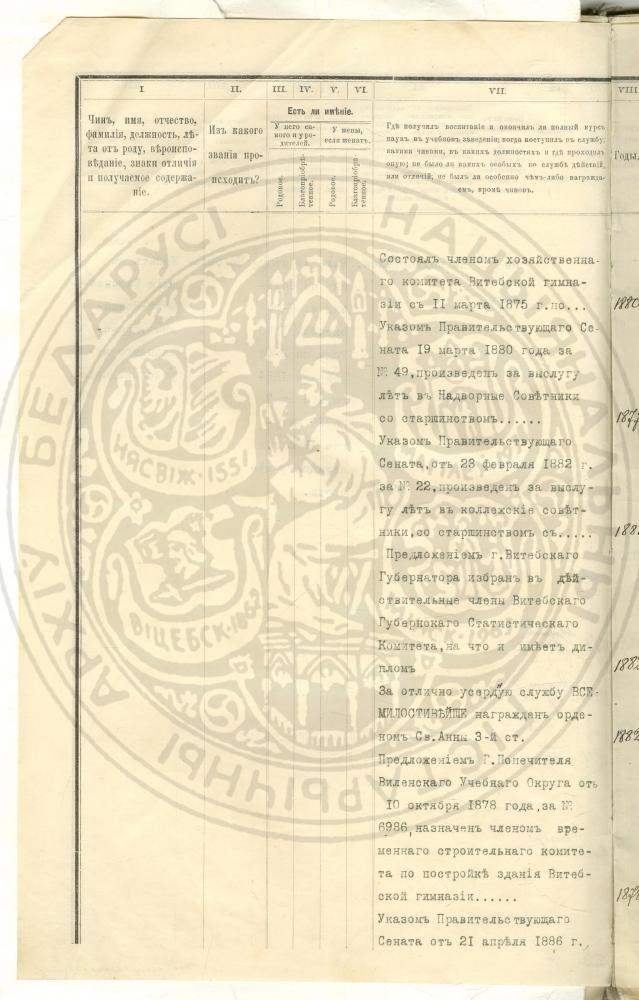 I.
II.
III.
IV.
V.
VI.
VII.
VIII
Чинъ, имя, отчество,
фамилія, должность, лѣ-
та отъ роду, вѣроиспо-
вѣданіе, знаки отличія
и получаемое содержа-
ніе.
Изъ какого
званія про-
исходитъ?
Есть ли имѣніе.
У него са-
мого и у ро-
дителей.
У жены,
если женатъ.
Родовое.
Благопріобрѣ-
тенное.
Родовое.
Благопріобрѣ-
тенное.
Гдѣ получилъ воспитаніе и окончилъ ли полный курсъ
наукъ въ учебномъ заведеніи; когда поступилъ въ службу,
какими чинами, въ какихъ должностяхъ и гдѣ проходилъ
оную; не было ли какихъ особыхъ по службѣ дѣйствій
или отличій; не былъ ли особенно чѣмъ-либо награжда-
емъ, кромѣ чиновъ.
Годы.
Состоялъ членомъ хозяйственна-
го комитета Витебской гимна-
зіи съ II марта 1875 г.по...
Указомъ Правительствующаго Се-
ната 19 марта 1880 года за
№ 49,произведенъ за выслугу
лѣтъ въ Надворные Совѣтники
со старшинствомъ......
Указомъ Правительствующаго
Сената,отъ 23 февраля 1882 г.
за № 22,произведенъ за выслу-
гу лѣтъ въ коллежскіе совѣт-
ники,со старшинствомъ съ.....
Предложеніемъ г.Витебскаго
Губернатора избранъ въ дѣй-
ствительные члены Витебскаго
Губернскаго Статистическаго
Комитета,на что и имѣетъ ди-
пломъ
За отлично усердую службу ВСЕ-
МИЛОСТИВѢЙШЕ награжденъ орде-
номъ Св.Анны 3-й ст.
Предложеніемъ Г.Попечителя
Виленскаго Учебнаго Округа отъ
10 октября 1878 года,за №
6986,назначенъ членомъ вре-
меннаго строительнаго комите-
та по постройкѣ зданія Витеб-
ской гимназіи......
Указомъ Правительствующаго
Сената отъ 21 апрѣля 1886 г.,
1880
1877
1882
1882
1878
НАЦЫЯНАЛЬНЫ
ГІСТАРЫЧНЫ
АРХІЎ БЕЛАРУСІ
НЯСВІЖ·155
ВІЦЕБСК·18